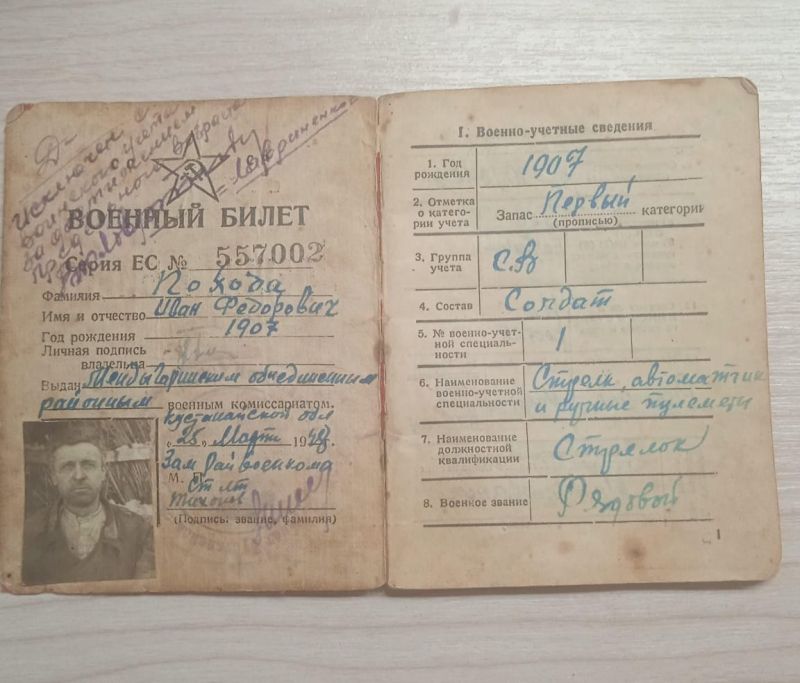 Исключен с
воинского учета
за достижением
предельного возраста
ВОЕННЫЙ БИЛЕТ
Серия ЕС № 557002
Фамилия Похода
Имя и отчество Иван Федорович
Год рождения 1907
Личная подпись
владельца
Выдан объединенным
районным военным комиссариатом
Кустанайской обл
"25" Марта 1948г.
Зам Райвоенкома
М. П.
Ст лт
(Подпись: звание, фамилия)
I. Военно-учетные сведения
1. Год
рождения
1907
2. Отметка
о катего-
рии учета
Запас Первый категории
(прописью)
3. Группа
учета
СВ
4. Состав
Солдат
5. № военно-учет-
ной специаль-
ности
1
6. Наименование
военно-учетной
специальности
Стрелк. автоматчик
и ручные пулеметч
7. Наименование
должностной
квалификации
Стрелок
8. Военное звание
Рядовой
1